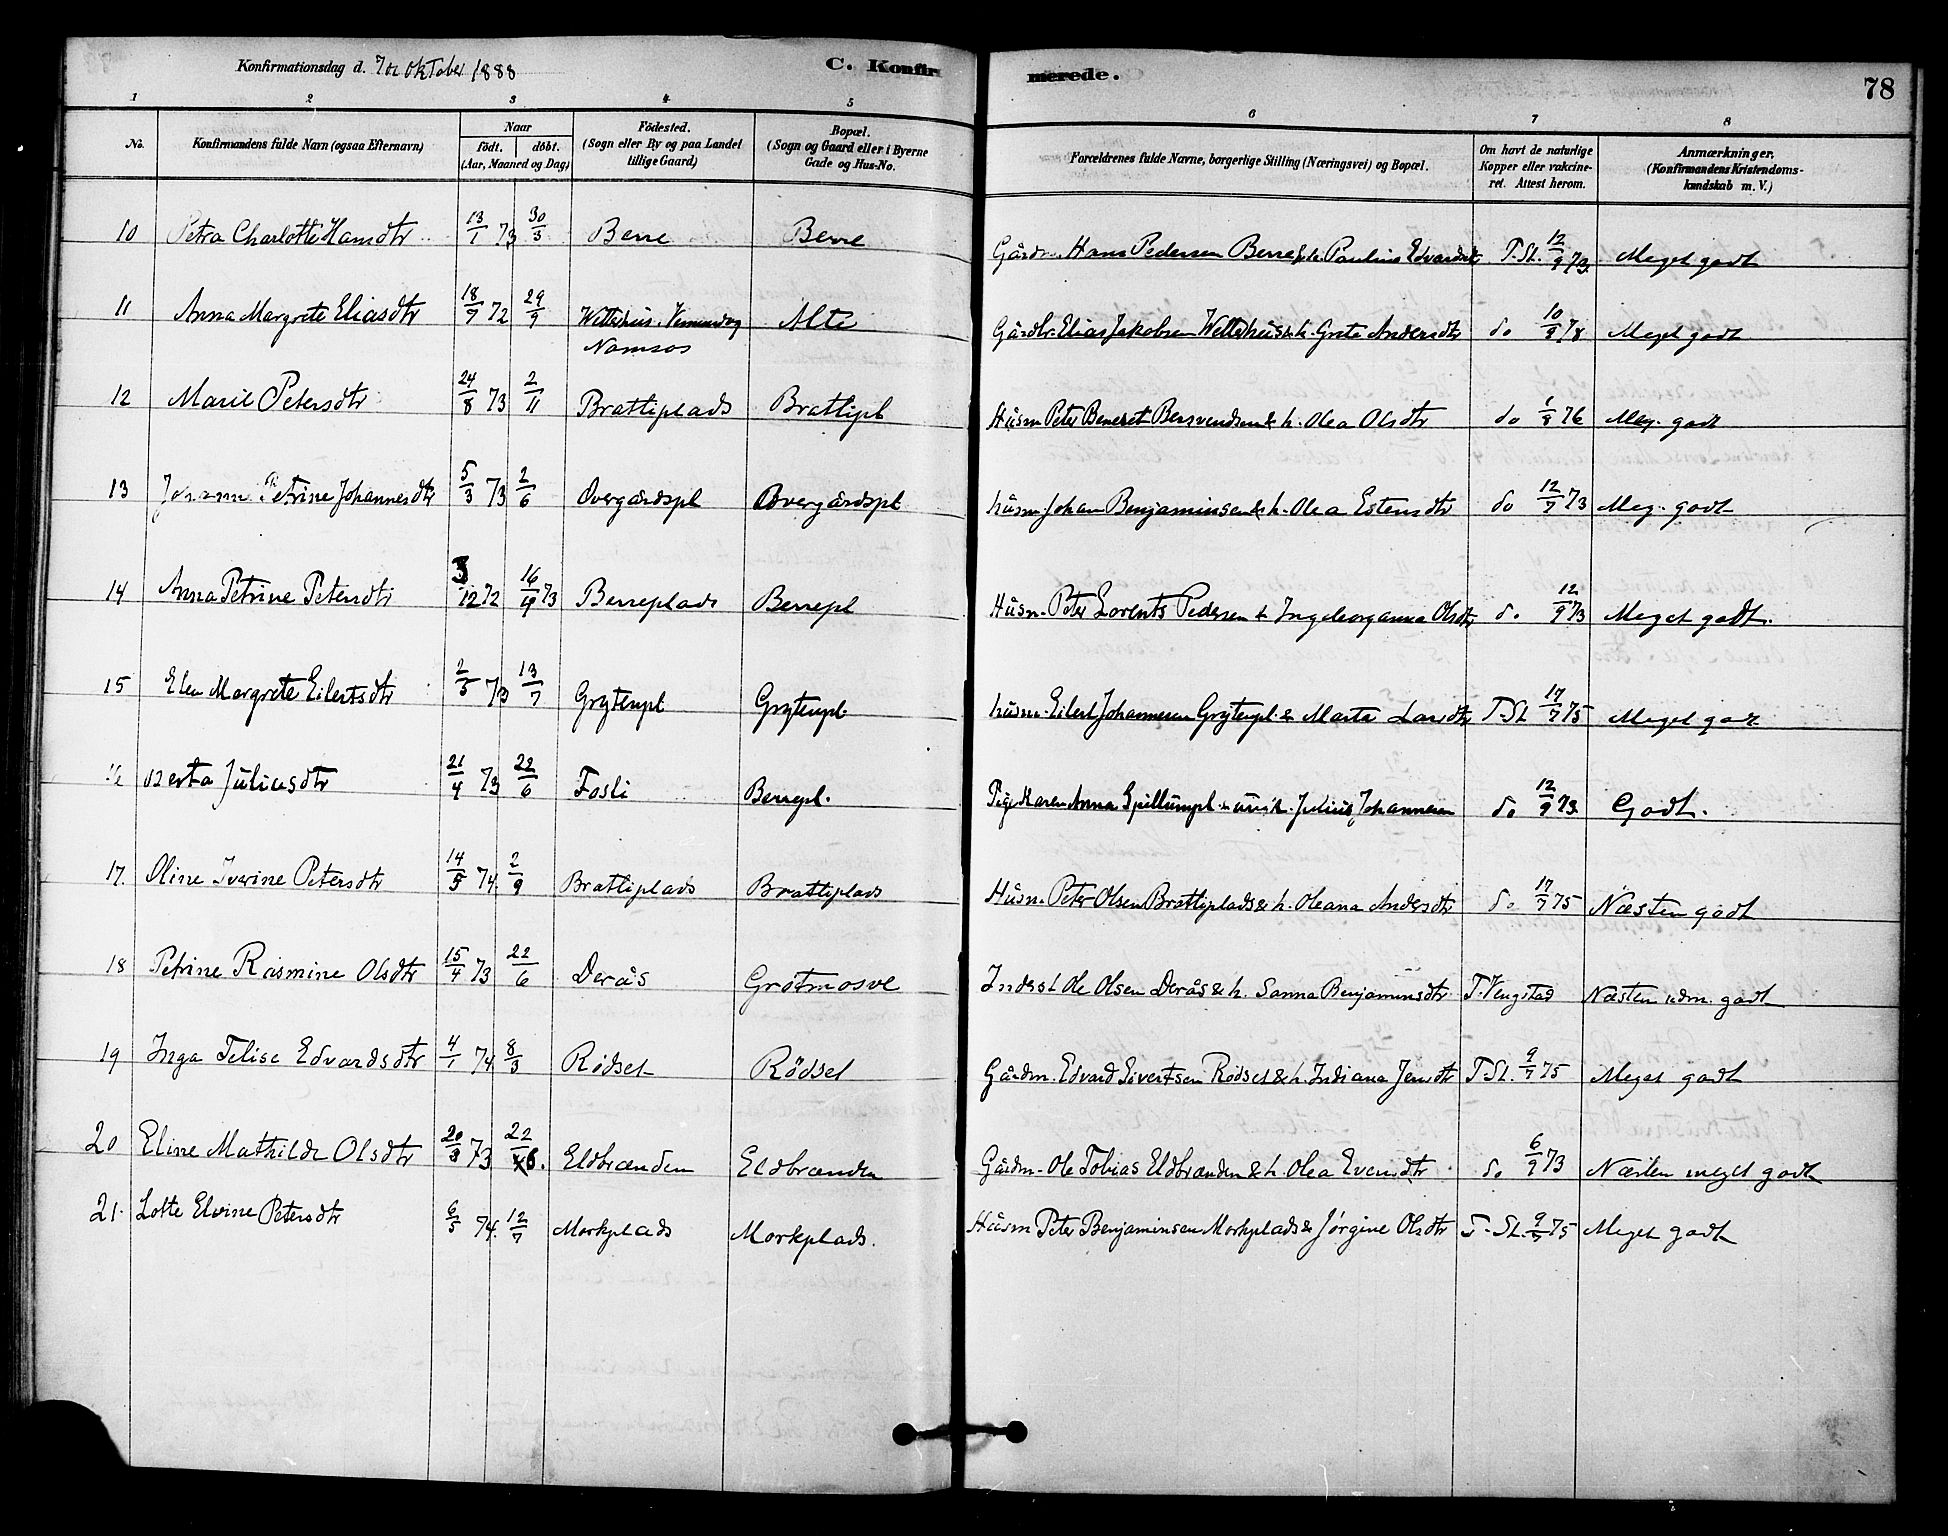 Konfirmationsdag d. 7de Oktober 1888
C. Konfirmerede.
78
1 2 3 4 5 6 7 8
No.
Konfirmandens fulde Navn (ogsaa Efternavn)
Naar
født. døbt.
(Aar, Maaned og Dag)
Fødested.
(Sogn eller By og paa Landet
tillige Gaard)
Bopæl.
(Sogn og Gaard eller i Byerne
Gade og Hus-No.
Forældrenes fulde Navne, borgerlige Stilling (Næringsvei) og Bopæl.
Om havt de naturlige
Kopper eller vakcine-
ret. Attest herom.
Anmærkninger.
(Konfirmandens Kristendoms-
kundskab m. V.)
10 Petra Charlotte Hansdtr 13/1 73 30/3 Berre Berre Gårdm. Hans Pedersen Berre & h. Pauline Edvardsdt T. St. 12/9 73 Meget godt
11 Anna Margrete Eliasdtr 18/7 72 29/9 Wettehus Alte Gårdbr. Elias Jakobsen Wettehus & h. Grete Andersdtr do 10/8 78 Meget godt
Namsos
12 Marie Petersdtr 24/8 73 2/11 Brattiplads Brattipl Husm Peter Beneset Bersvendsen & h. Olea Olsdtr do 1/8 76 Meg. godt
13 Petrine Johannesdtr 5/3 73 2/6 Overgårdspl Overgårdspl husm. Johan Benjaminsen & h. Olea Estensdtr do 12/7 73 Meg. godt
14 Anna Petrine Petersdtr 3/12 72 16/4 73 Berreplads Berrepl Husm. Peter Lorents Pedersen & Ingeborganna Olsdtr do 12/9 73 Meget godt.
15 Elen Margrete Eilertsdtr 2/5 73 13/7 Grytenpl Grytenpl. husm. Eilert Johannesen Grytenpl. & Marta Larsdtr T. St 17/7 75 Meget godt
16 Berta Juliusdtr 21/4 73 22/6 Fosli Berrepl. Pige Karen Anna Spillumpl. Julius Johannesen do 12/9 73. Godt.
17. Oline Iverine Petersdtr 14/5 74. 2/9 Brattiplads Brattiplads Husm. Peter Olsen Brattiplads & h. Oleana Andersdtr do 17/7 75 Næsten godt
18 Petrine Rasmine Olsdtr 15/4 73 22/6 Derås Grøtmosve Inderst Ole Olsen Derås & h. Sanna Benjaminsdtr T. Vengstad Næsten udm. godt
19 Inga Felise Edvardsdtr 4/1 74 8/3 Rødset Rødset Gårdm. Edvard Sivertsen Rødset & h. Indiana Jensdtr T. St. 9/7 75 Meget godt
20 Eline Mathilde Olsdtr 20/3 73 22/6. Eldbrænden Eldbrænden Gårdm. Ole Tobias Eldbrænden & h. Olea Evensdtr do 6/9 73 Næsten meget godt
21. Lotte Elvine Petersdtr 6/5 74. 12/7 Morkplads Morkplads. Husm Peter Benjaminsen Morkplads & Jørgine Olsdtr T. St. 9/7 75 Meget godt